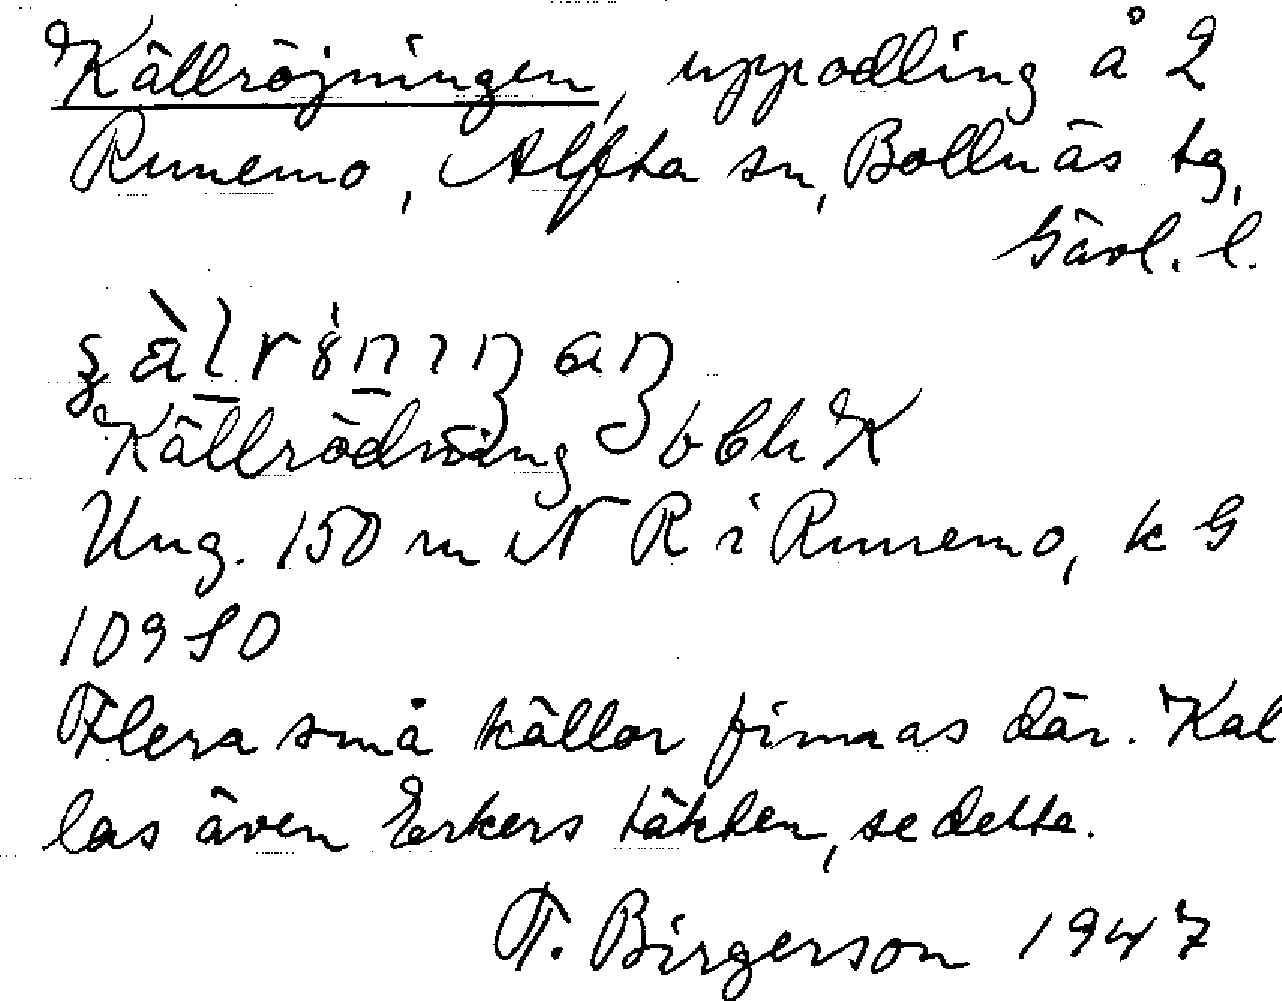 Källröjningen, uppodling å 2
Runemo, Alfta sn, Bollnäs tg,
Gävl. l.
Källrödning
Ung. 150 m N R i Runemo, k G
10980
Flera små källor finnas där. Kal
las även Erkers täkten, se detta.
T. Birgerson 1947